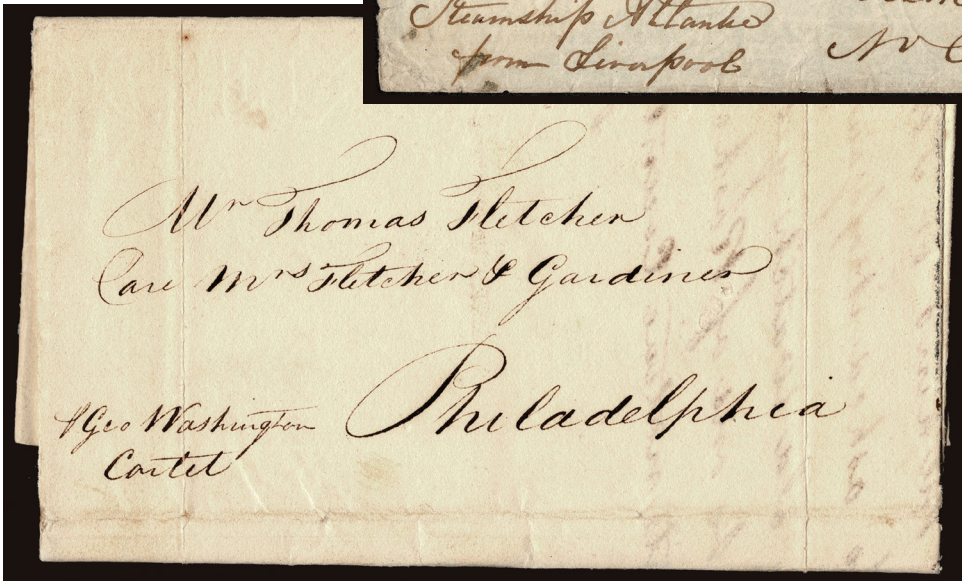 Steamship Atlantic
from Liverpool
Mr Thomas Fletcher
Care Mrs Fletcher & Gardiner
Philadelphia
p Geo Washington
Cartel